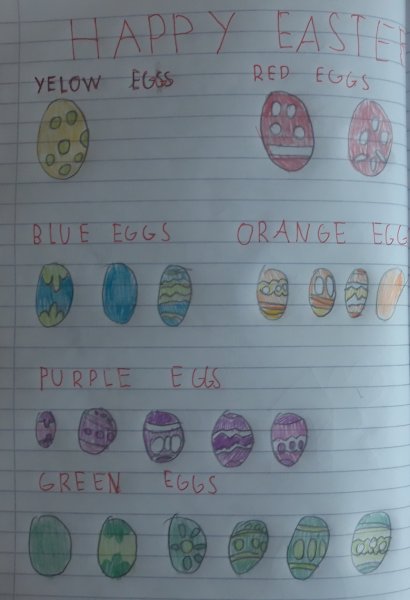 HAPPY EASTER
YELOW EGGS
RED EGGS
BLUE EGGS
ORANGE EGG
PURPLE EGGS
GREEN EGGS